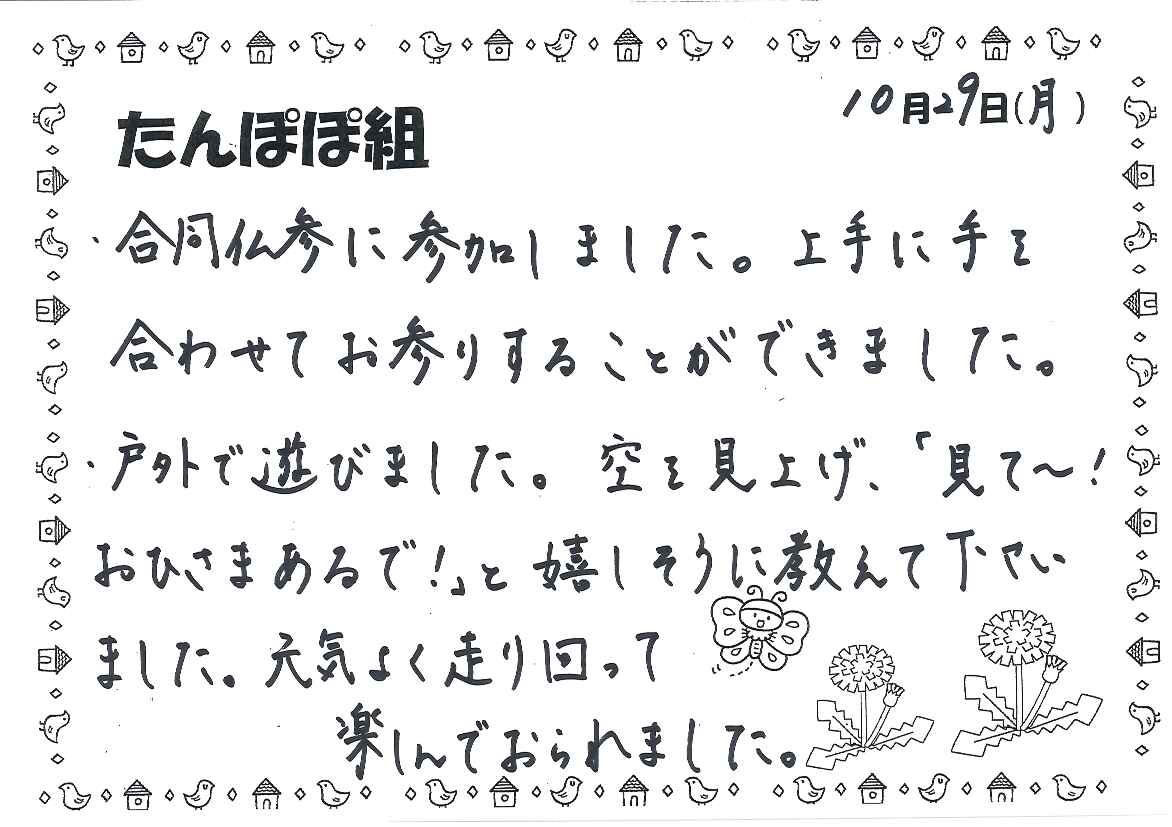 10月29日(月)
たんぽぽ組
・合同仏参に参加しました。上手に手を
合わせてお参りすることができました。
・戸外で遊びました。空を見上げ、「見て～!
おひさまあるで!」と嬉しそうに教えて下さい
ました。元気よく走り回って
楽しんでおられました。